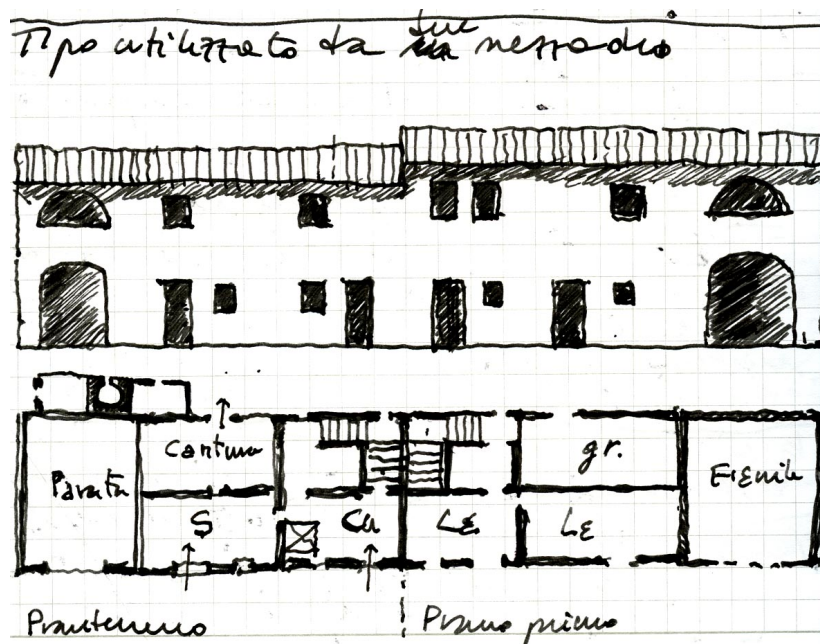 Tipo utilizzato da due mezzadri
Cantina
gr.
Parata
Fienile
S
Ca
Le
Le
Pianterreno
Piano primo